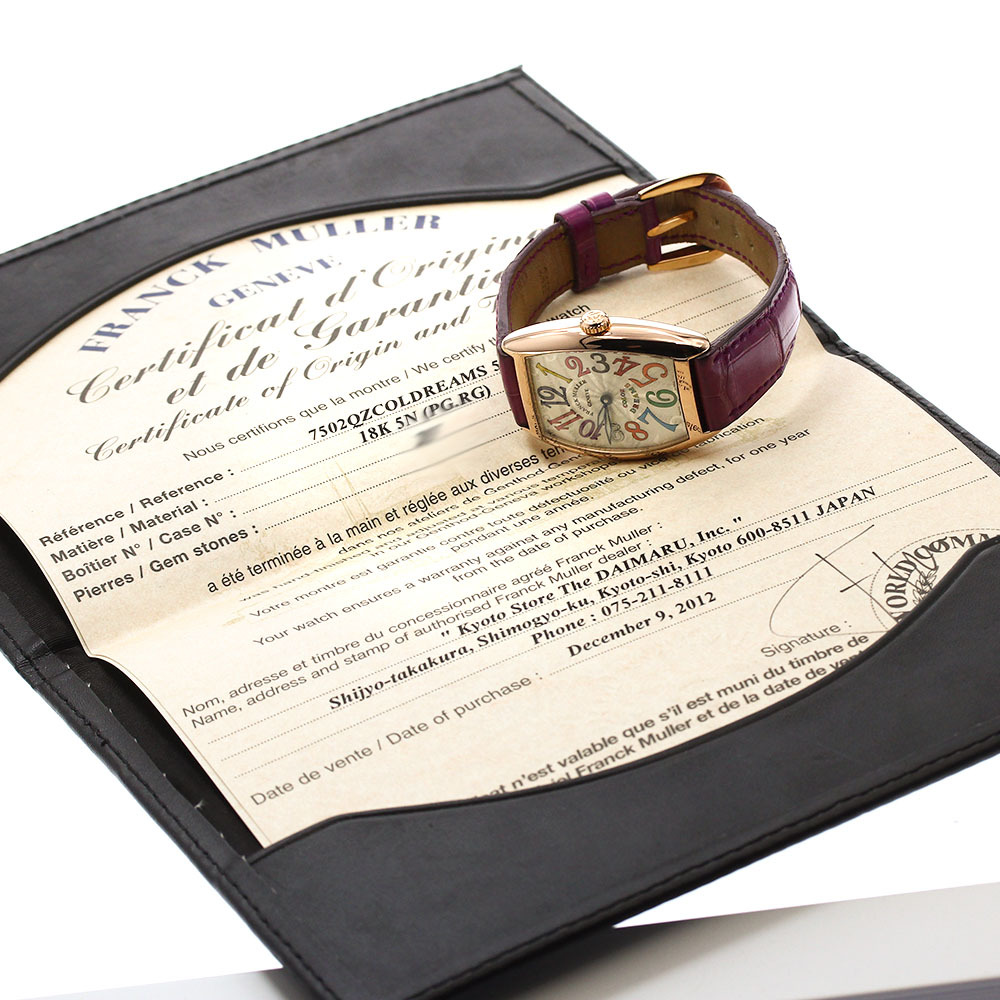 FRANCK MULLER
GENEVE
Certificat d'Origine
et de Garantie
Certificate of Origin and
Nous certifions que la montre / We certify watch
Référence / Reference : 7502QZCOLDREAMS 5
Matière / Material : 18K 5N (PG.RG)
Boîtier N° / Case N° :
Pierres / Gem stones :
a été terminée à la main et réglée aux diverses
dans nos ateliers de Genthod
Votre montre est garantie contre toute défectuosité ou vice de fabrication
pendant une année.
Your watch ensures a warranty against any manufacturing defect, for one year
from the date of purchase.
Nom, adresse et timbre du concessionnaire agréé Franck Muller :
Name, address and stamp of authorised Franck Muller dealer :
" Kyoto Store The DAIMARU, Inc. "
Shijyo-takakura, Shimogyo-ku, Kyoto-shi, Kyoto 600-8511 JAPAN
Phone : 075-211-8111
Date de vente / Date of purchase : December 9, 2012
Signature :
n'est valable que s'il est muni du timbre de
Franck Muller et de la date de
FRANCK MULLER
GENEVE
COLOR
DREAMS